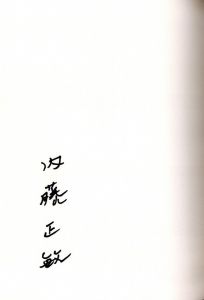 内藤正敏